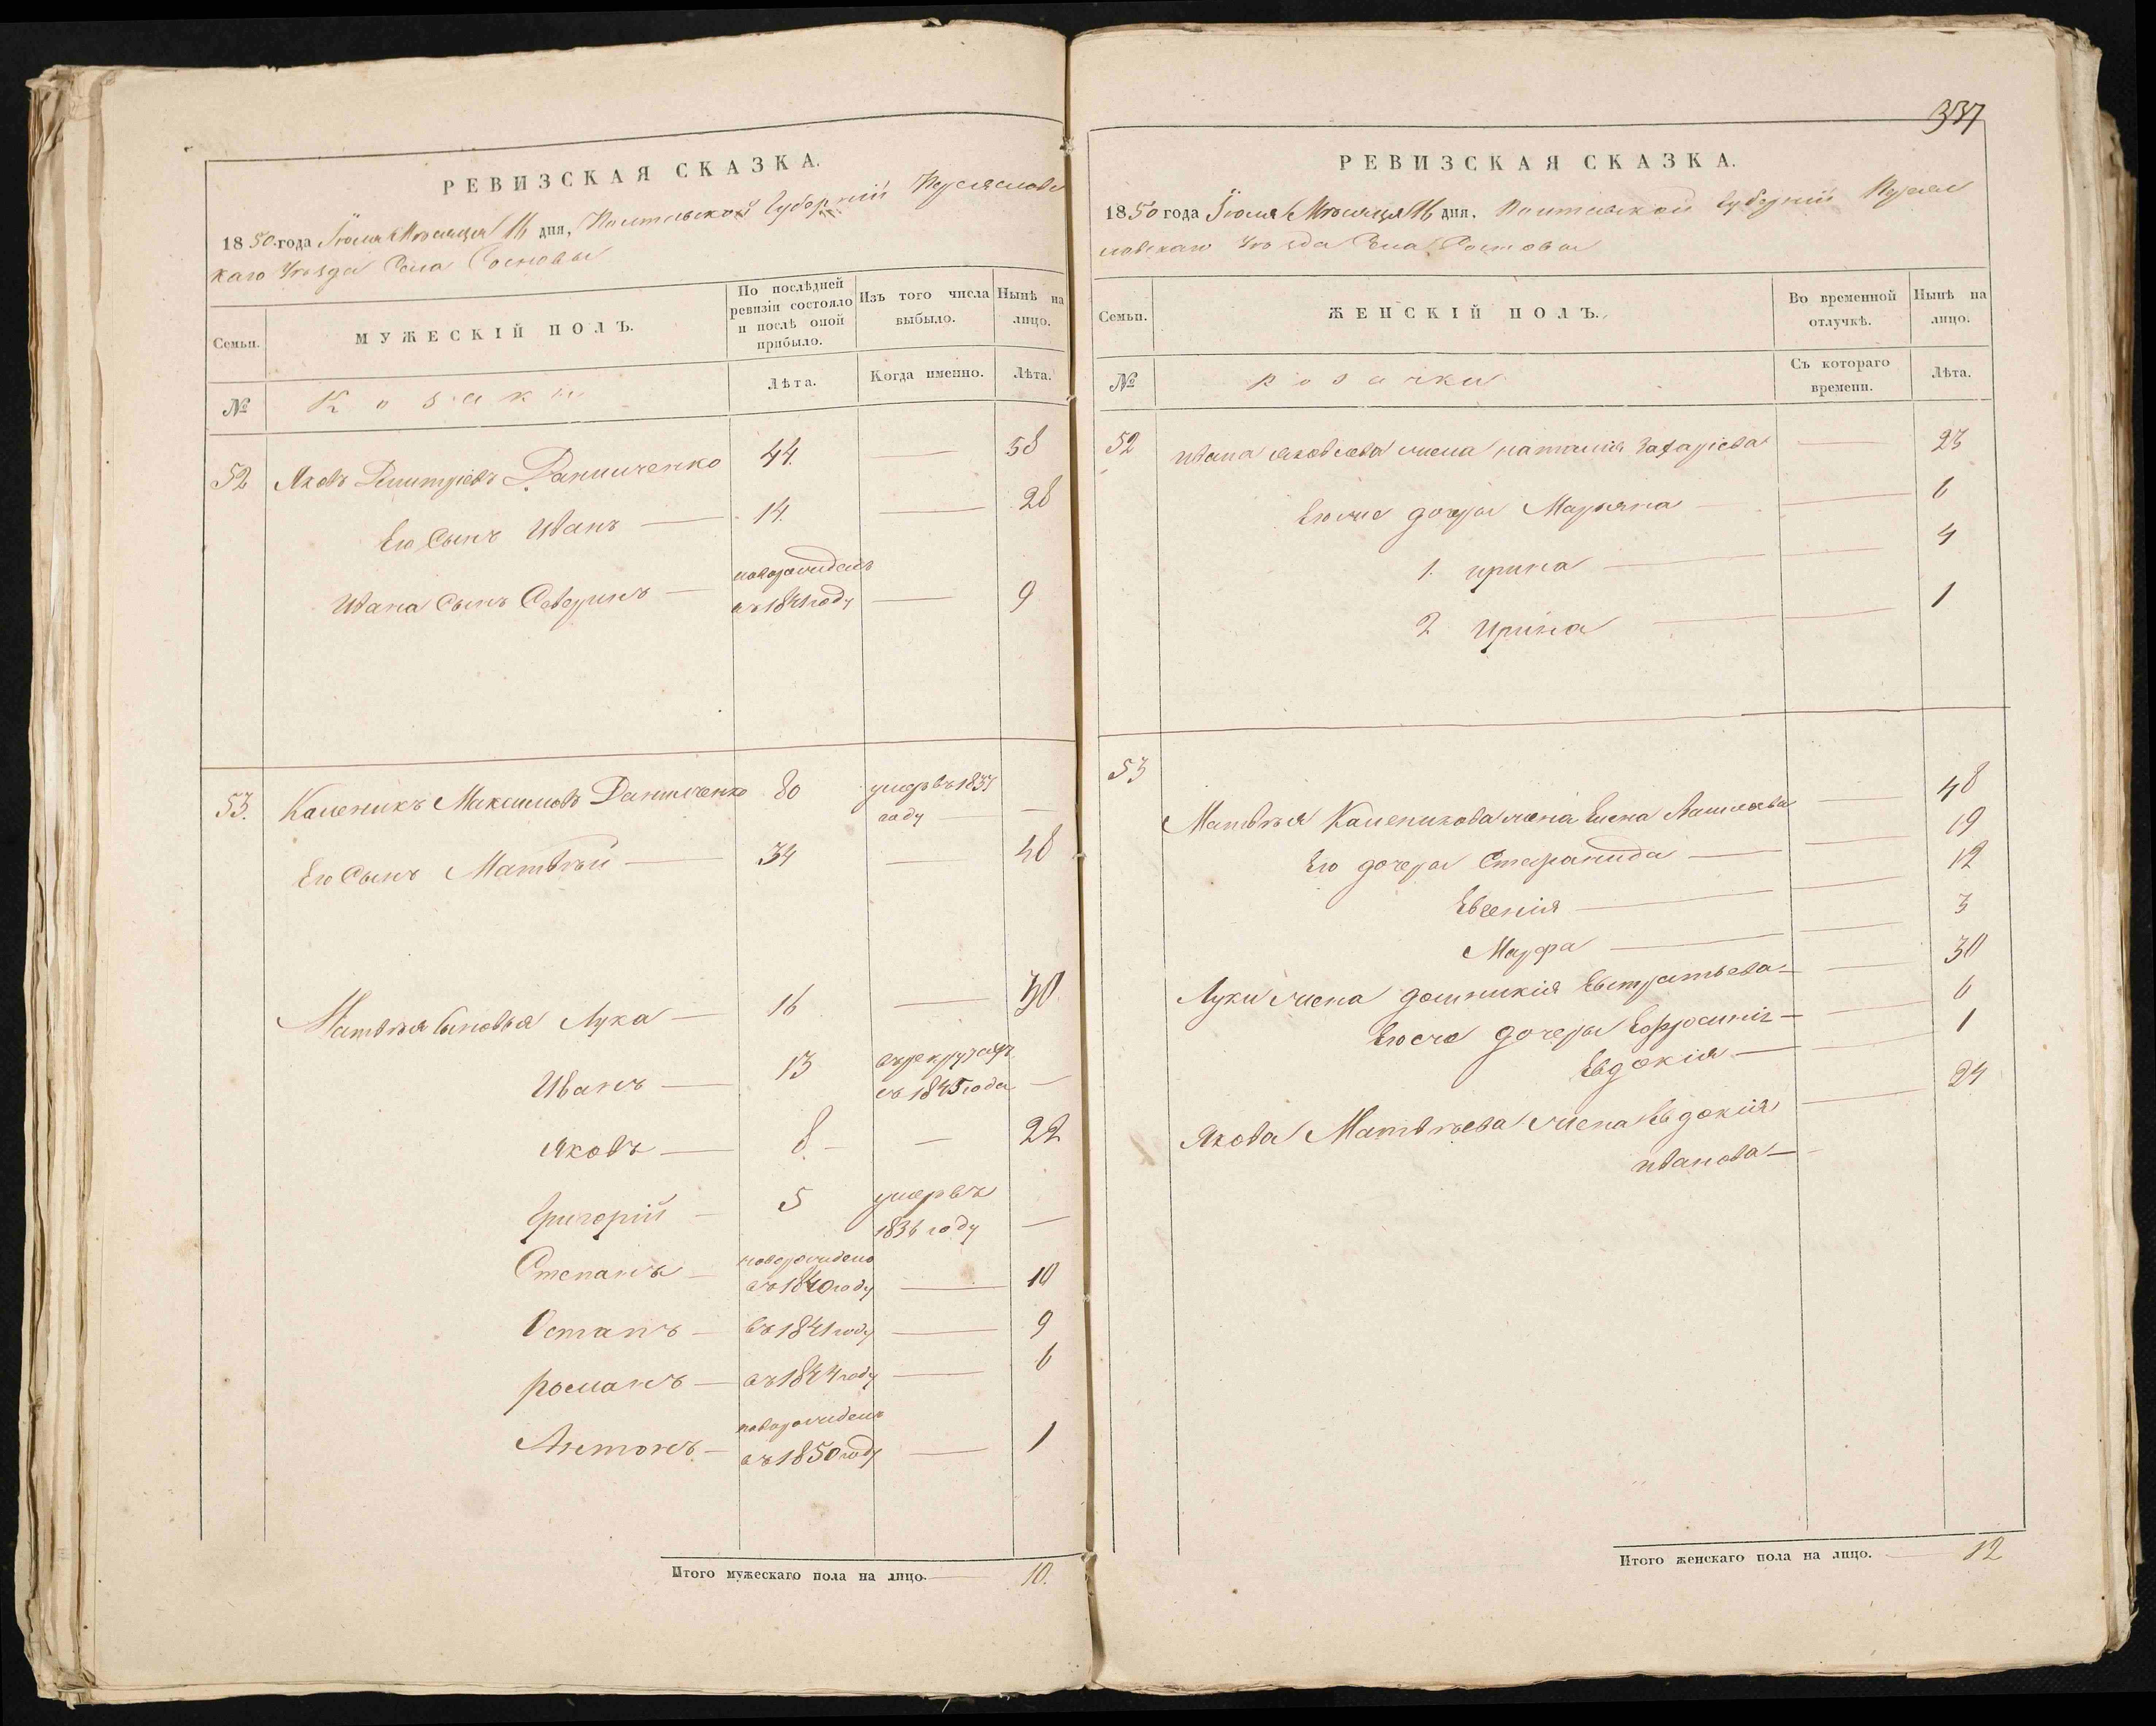 РЕВИЗСКАЯ СКАЗКА.
1850 года Іюля Мѣсяца 16 дня, Полтавской Губерніи Переяславс
каго Уѣзда Села Сосновы
Семьи.
МУЖЕСКІЙ ПОЛЪ.
По послѣдней ревизіи состояло и послѣ оной прибыло.
Изъ того числа выбыло.
Нынѣ на лицо.
№
Козаки
Лѣта.
Когда именно.
Лѣта.
52 Яковъ Дмитріевъ Данильченко 44. — 58
Его Сынъ Иванъ — 14. — 28
Ивана Сынъ Северинъ — новорожденъ
въ 1841 году — 9
53. Каленикъ Максимовъ Данильченко 80 умеръ въ 1837
году —
Его Сынъ Матвѣй — 34 — 48
Матвѣя Сыновья Лука — 16 — 30
Иванъ — 13 въ рекрутахъ
съ 1845 года —
Яковъ — 8. — — 22
Григорій — 5 умеръ въ
1836 году —
Степанъ — новорожденъ
въ 1840 году — 10
Остапъ — въ 1841 году — 9
Романъ — въ 1844 году — 6
Антонъ — новорожденъ
въ 1850 году — 1
Итого мужескаго пола на лицо. — 10.
337
РЕВИЗСКАЯ СКАЗКА.
1850 года Іюля Мѣсяца 16 дня. Полтавской Губерніи Переяс
лавскаго Уѣзда Села Сосновы
Семьи.
ЖЕНСКІЙ ПОЛЪ.
Во временной отлучкѣ.
Нынѣ на лицо.
№
Козачки
Съ котораго времени.
Лѣта.
52 Ивана Яковлева жена Наталія Захаріева — 23
Его же дочеры Марьяна — 6
1. Ирина — 4
2 Ирина — 1
53
Матвѣя Каленикова жена Елена — 48
Его дочеры Стефанида — 19
Евгенія — 12
Марфа — 3
Луки жена Домникія Евстратьева — 30
Его же дочеры Ефросинія — 6
Евдокія — 1
Якова Матвѣева жена Евдокія — 24
Иванова —
Итого женскаго пола на лицо. — 12